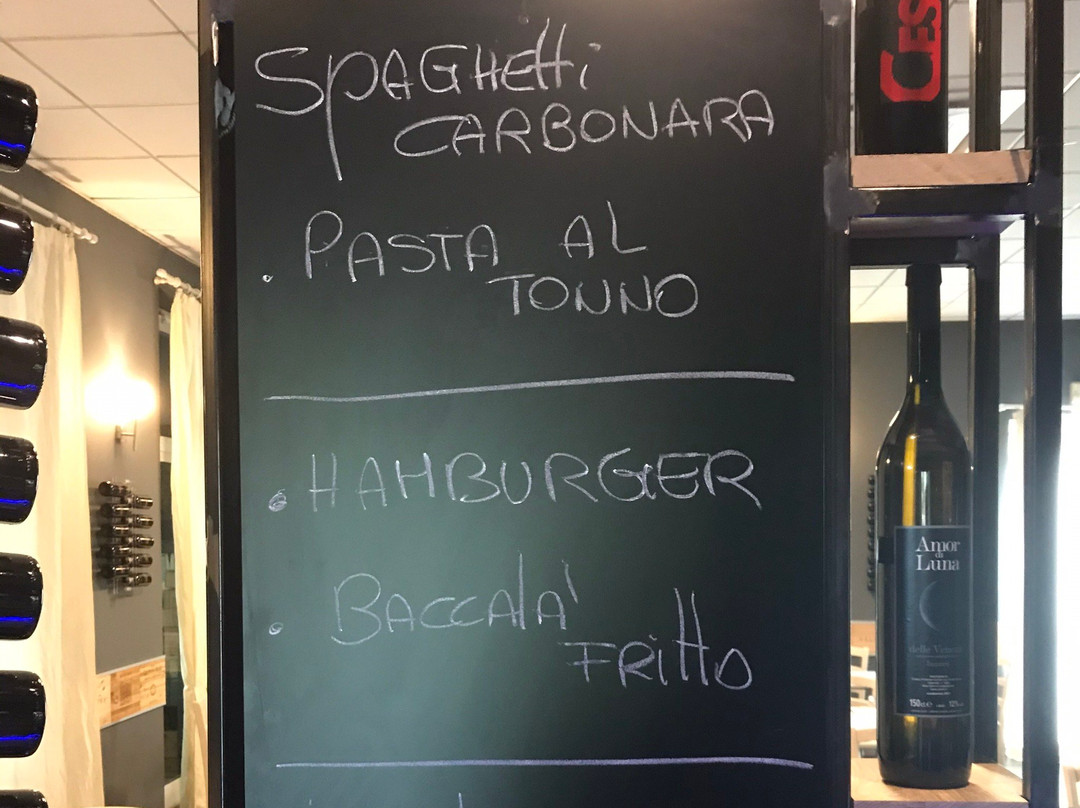 SPAGHETTI
CARBONARA
. PASTA AL
TONNO
. HAMBURGER
. BACCALA'
FRITTO
CES
Amor
di
Luna
delle Venezie
150cl e